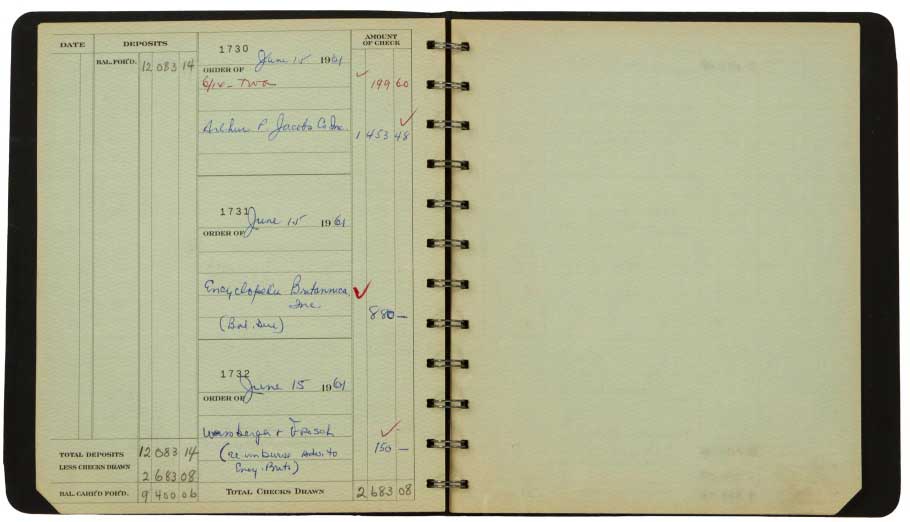 DATE DEPOSITS AMOUNT OF CHECK
BAL. FOR'D. 12 083 14
1730 June 15 1961
ORDER OF
6/12 - TWA ✓ 199 60
Arthur P. Jacobs Co Inc. 1 453 48 ✓
1731 June 15 1961
ORDER OF
Encyclopedia Britannica, ✓
Inc.
880 —
(Bal. due)
1732 June 15 1961
ORDER OF
Weissberger & Frosch ✓
150 —
(re imburse adv. to
Ency. Brit.)
TOTAL DEPOSITS 12 083 14
LESS CHECKS DRAWN
2 683 08
BAL. CARR'D FOR'D. 9 400 06 TOTAL CHECKS DRAWN 2 683 08